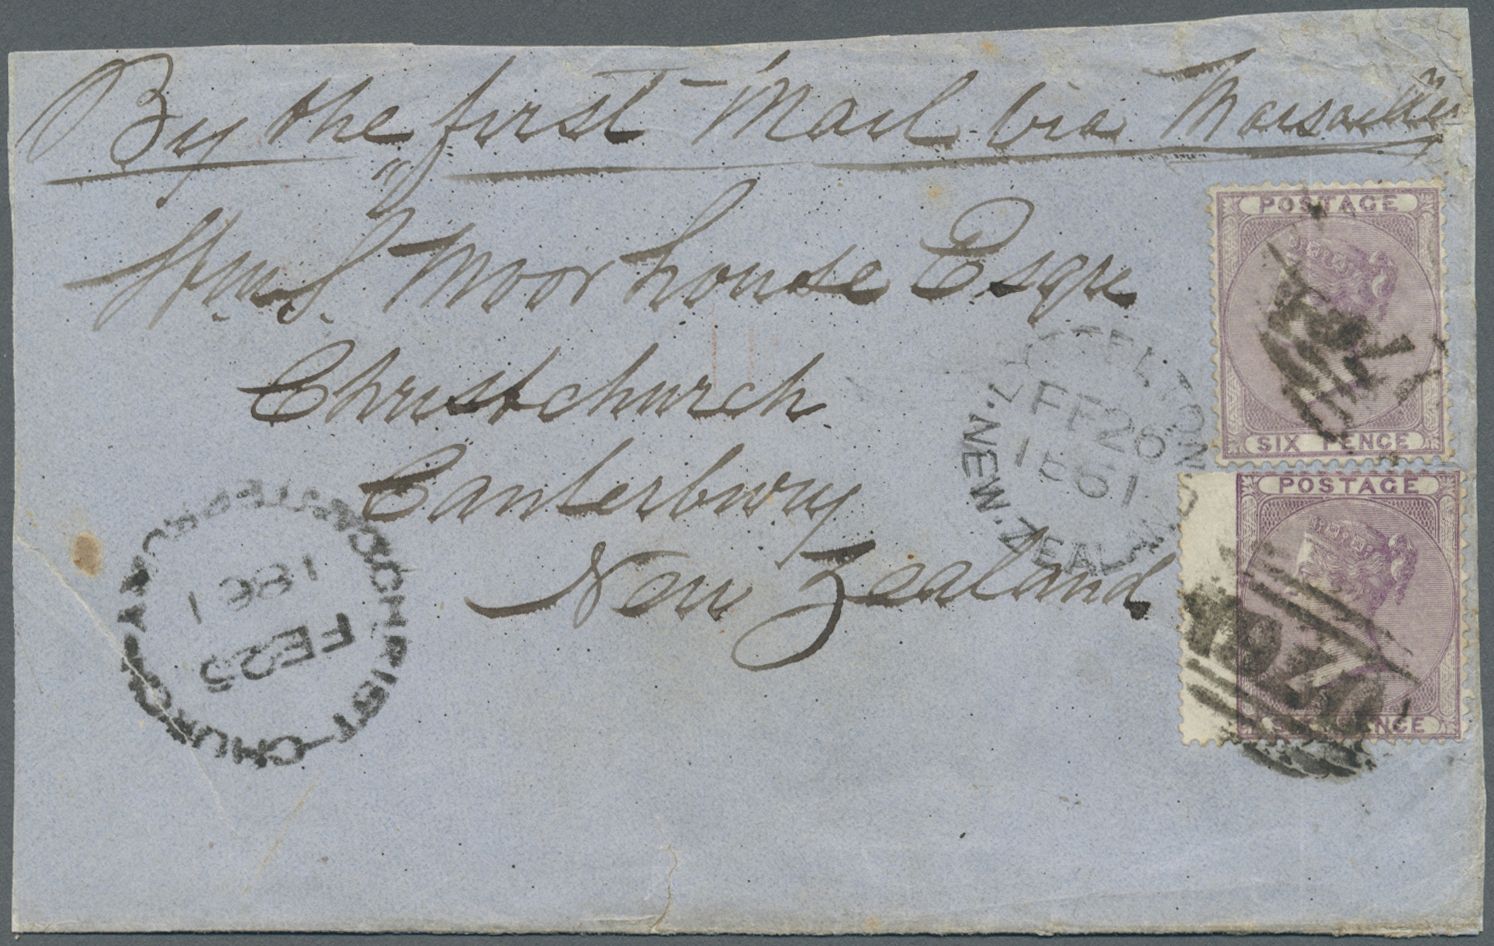 By the first Mail via Marseilles
Wm. S. Moorhouse Esqre
Christchurch
Canterbury
New Zealand
POSTAGE
SIX PENCE
POSTAGE
SIX PENCE
LYTTELTON
FE 26
1861
NEW.ZEALAND
CHRIST-CHURCH
CANTERBURY
FE 26
1861